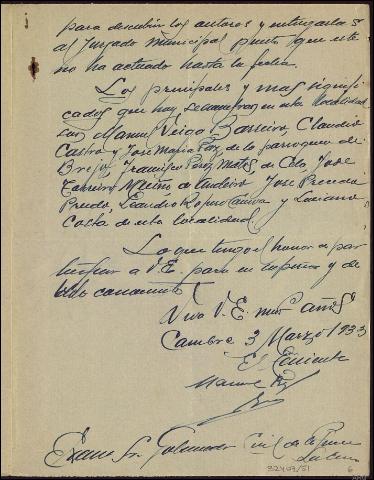 para descubrir los autores y entregarlos
al Juzgado municipal puesto que este
no ha actuado hasta la fecha.
Los principales y mas signifi
cados que hay
son Manuel Veiga Barreiro, Claudio
Castro y José Maria Paz, de la parroquia de
Brejo, Francisco Perez Matos de Cela, Jose
Jose
Pardo, Leandro y Luciano
Costa de esta localidad
Lo que tengo el honor de par
ticipar a V.E. para su superior y de
bido conocimiento
Viva V.E. muchos años
Cambre 3 Marzo 1933
El Teniente
Manuel
Excmo Sr. Gobernador Civil de la Provincia
La Coruña
32403/51
6